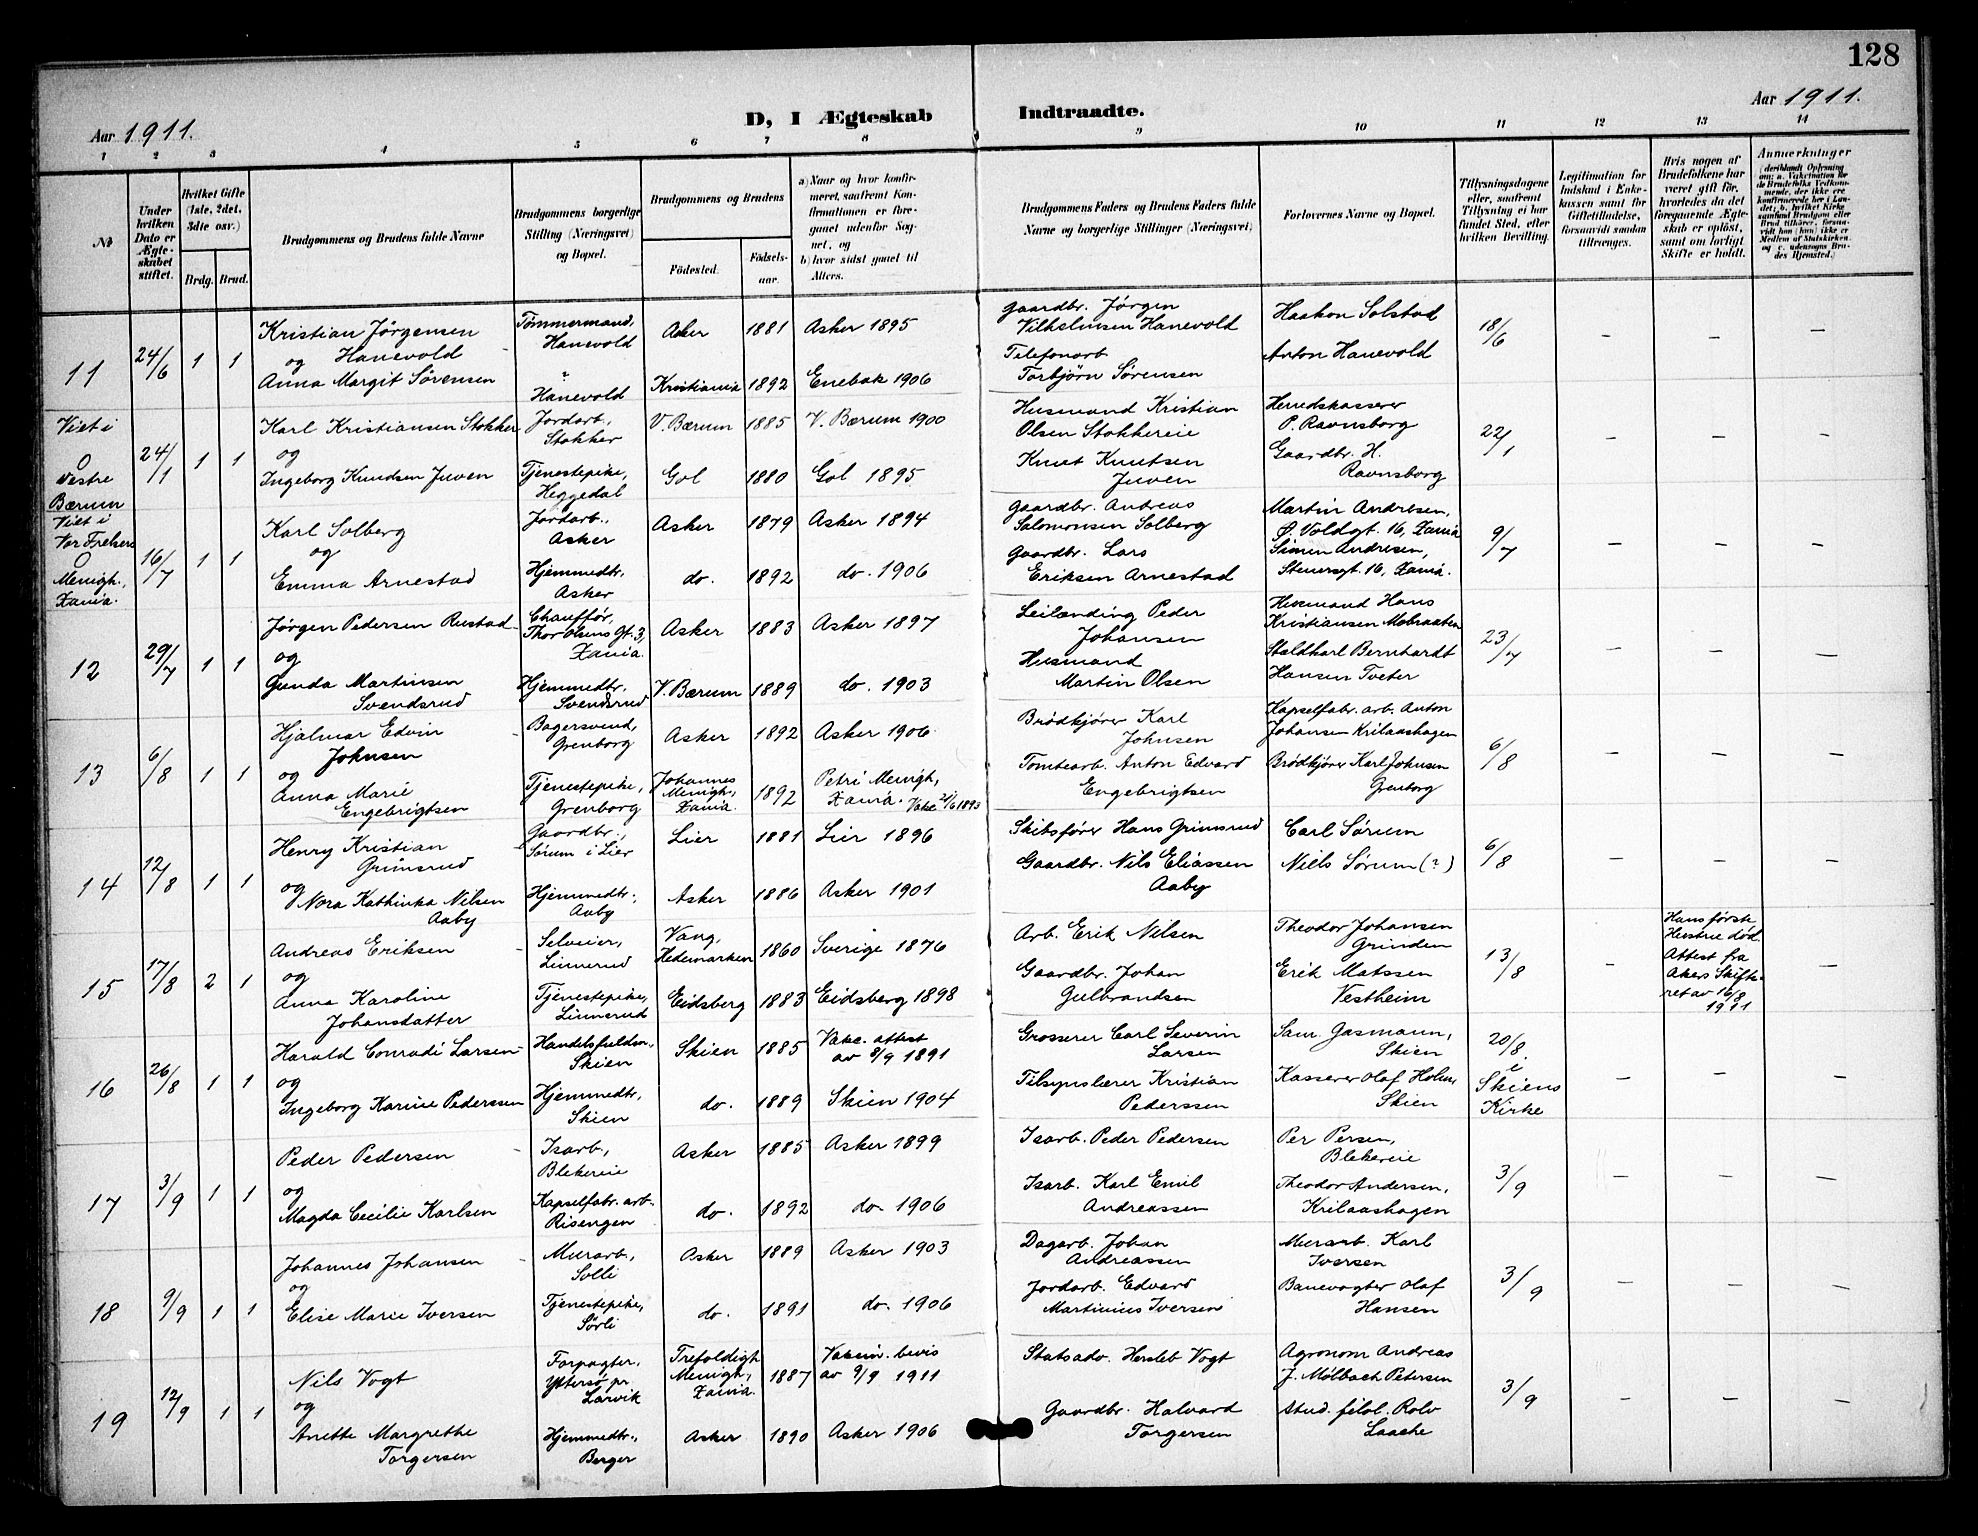 128
Aar 1911.
D, I Ægteskab Indtraadte.
Aar 1911.
1 2 3 4 5 6 7 8 9 10 11 12 13 14
№
Under hvilken Dato er Ægteskabet stiftet.
Hvilket Gifte (1ste, 2det, 3die osv.)
Brdg. Brud.
Brudgommens og Brudens fulde Navne
Brudgommens borgerlige Stilling (Næringsvei) og Bopæl.
Brudgommens og Brudens
Fødested. Fødselsaar.
a) Naar og hvor konfirmeret, saafremt Konfirmationen er foregaaet udenfor Sognet, og
b) hvor sidst gaaet til Alters.
Brudgommens Faders og Brudens Faders fulde Navne og borgerlige Stillinger (Næringsvei)
Forlovernes Navne og Bopæl.
Tillysningsdagene eller, saafremt Tillysning ei har fundet Sted, efter hvilken Bevilling.
Legitimation for Indskud i Enkekassen samt for Giftetilladelse, forsaavidt saadan tiltrænges.
Hvis nogen af Brudefolkene har været gift før, hvorledes da det foregaaende Ægteskab er opløst, samt om lovligt Skifte er holdt.
Anmerkninger
(deriblandt Oplysning om: a. Vakcination for de Brudefolks Vedkommende, der ikke ere konfirmerede her i Landet; b. hvilket Kirkesamfund Brudgom eller Brud tilhører, forsaavidt han (hun) ikke er Medlem af Statskirken, og c. udensogns Brudes Hjemsted.)
11 24/6 1 1
Kristian Jörgensen Hanevold
og
Anna Margit Sörensen
Tömmermand, Hanevold
" Hanevold
Asker 1881 Asker 1895
Kristiania 1892 Enebak 1906
Gaardbr. Jörgen Vilhelmsen Hanevold
Telefonarb. Torbjörn Sörensen
Haakon Solstad
Anton Hanevold
18/6 – – –
Viet i Vestre Bærum
0 24/1 1 1
Karl Kristiansen Stokker
og
Ingeborg Knudsen Juven
Jordarb., Stokker
Tjenestepike, Heggedal
V. Bærum 1885 V. Bærum 1900
Gol 1880 Gol 1895
Husmand Kristian Olsen Stokkereie
Knut Knutsen Juven
Herredskasserer P. Ravnsborg
Gaardbr. H. Ravnsborg
22/1 – – –
Viet i Vor Frelsers Menigh., Xania.
0 16/7 1 1
Karl Solberg
og
Emma Arnestad
Jordarb., Asker
Hjemmedtr., Asker
Asker 1879 Asker 1894
do. 1892 do. 1906
Gaardbr. Andreas Salomonsen Solberg
Gaardbr. Lars Eriksen Arnestad
Martin Andresen, Ø. Voldgt. 16, Xania
Simen Andresen, Stenersgt. 16, Xania.
9/7 – – –
12 29/7 1 1
Jörgen Pedersen Rustad
og
Gunda Martinsen Svendsrud
Chaufför, Thor Olsens Gt. 3, Xania.
Hjemmedtr. Svendsrud
Asker 1883 Asker 1897
V. Bærum 1889 do. 1903
Leilænding Peder Johansen
Husmand Martin Olsen
Husmand Hans Kristiansen Mobraaten
Staldkarl Bernhardt Hansen Tveter
23/7 – – –
13 6/8 1 1
Hjalmar Edvin Johnsen
og
Anna Marie Engebrigtsen
Bagersvend, Grenborg
Tjenestepike, Grenborg
Asker 1892 Asker 1906
Johannes Menigh., Xania. 1892 Petri Menigh, Xania. Vakc 2/6 1893
Brödkjörer Karl Johnsen
Tomtearb. Anton Edvard Engebrigtsen
Kapselfabr. arb. Anton Johansen Krilaashagen
Brödkjörer Karl Johnsen Grenborg
6/8 – – –
14 12/8 1 1
Henry Kristian Grimsrud
og
Nora Kathinka Nilsen Aaby
Gaardbr., Sørum i Lier
Hjemmedtr., Aaby
Lier 1881 Lier 1896
Asker 1886 Asker 1901
Skibsförer Hans Grimsrud
Gaardbr. Nils Eliassen Aaby
Carl Sørum
Niels Sørum (?)
6/8 – – –
15 17/8 2 1
Andreas Eriksen
og
Anna Karoline Johansdatter
Selveier, Linnerud
Tjenestepike, Linnerud
Vang, Hedemarken 1860 Sverige 1876
Eidsberg 1883 Eidsberg 1898
Arb. Erik Nilsen
Gaardbr. Johan Gulbrandsen
Theodor Johansen Grinden
Erik Matssen Vestheim
13/8 –
Hans første Hustru död. Attest fra Akers Skifteret av 16/8 1911
–
16 26/8 1 1
Harald Conradi Larsen
og
Ingeborg Karine Pederssen
Handelsfuldm., Skien
Hjemmedtr., Skien
Skien 1885 Vakc. attest av 8/9 1891
do. 1889 Skien 1904
Grosserer Carl Severin Larsen
Tilsynslærer Kristian Pederssen
Sam. Gasmann, Skien
Kasserer Olaf Holm, Skien
20/8. i Skiens Kirke – – –
17 3/9 1 1
Peder Pedersen
og
Magda Cecilie Karlsen
Isarb., Blekereie
Kapselfabr. arb. Risengen
Asker 1885 Asker 1899
do. 1892 do. 1906
Isarb. Peder Pedersen
Isarb. Karl Emil Andreassen
Per Persen, Blekereie
Theodor Andersen, Krilaashagen
3/9 – – –
18 9/9 1 1
Johannes Johansen
og
Elise Marie Iversen
Murarb., Solli
Tjenestepike, Sörli
Asker 1889 Asker 1903
do. 1891 do. 1906
Dagarb. Johan Andreassen
Jordarb. Edvard Martinius Iversen
Murarb. Karl Iversen
Banevogter Olaf Hansen
3/9 – – –
19 12/9 1 1
Nils Vogt
og
Anette Margrethe Torgersen
Forpagter, Yttersö pr. Larvik
Hjemmedtr., Berger
Trefoldigh. Menigh., Xania. 1887 Vaccin. bevis av 9/9 1911
Asker 1890 Asker 1906
Statsadv. Hersleb Vogt
Gaardbr. Halvard Torgersen
Agronom Andreas J. Mölbach Petersen
Stud. filol. Rolv Laache
3/9 – – –